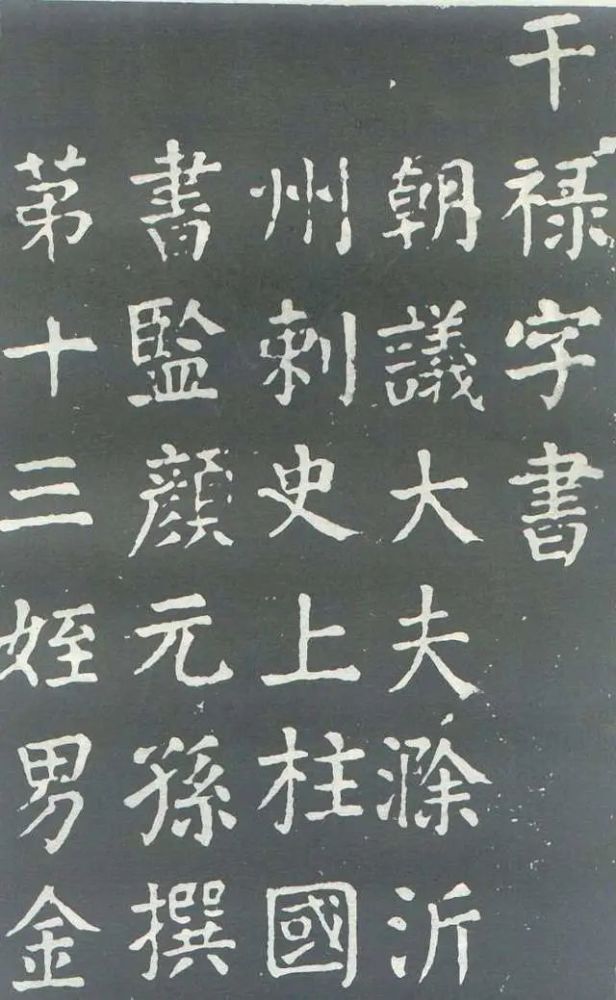 干禄字書
朝議大夫滁沂
州刺史上柱國
書監顏元孫撰
第十三姪男金